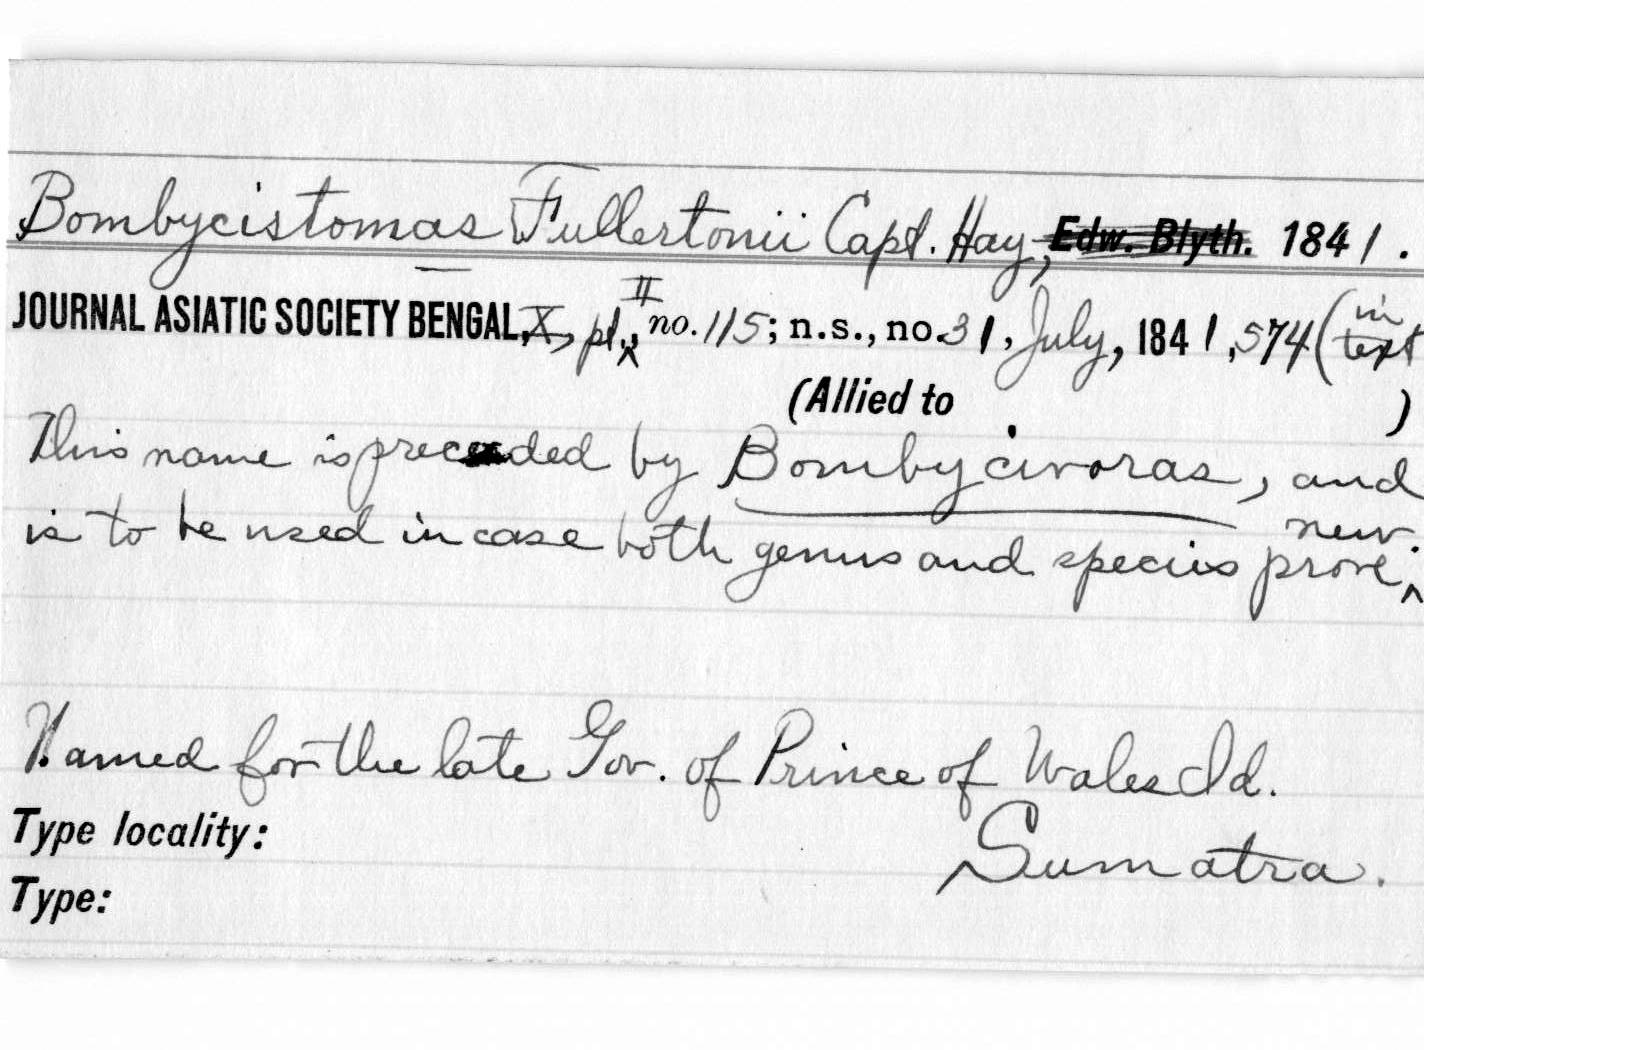 Bombycistomas Fullertonii Capt. Hay, Edw. Blyth. 1841.
JOURNAL ASIATIC SOCIETY BENGAL, X, pt. II, no. 115; n.s., no. 31, July, 1841, 574 (in text
(Allied to )
This name is preceded by Bombycivoras, and
is to be used in case both genus and species prove new.
Named for the late Gov. of Prince of Wales Id.
Type locality: Sumatra.
Type: